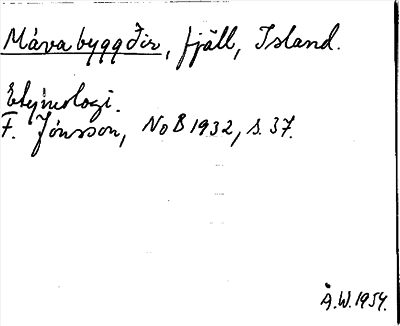 Mávabyggðir, fjäll, Island.
Etymologi.
F. Jónsson, NoB 1932, s. 37.
Å.W. 1954.